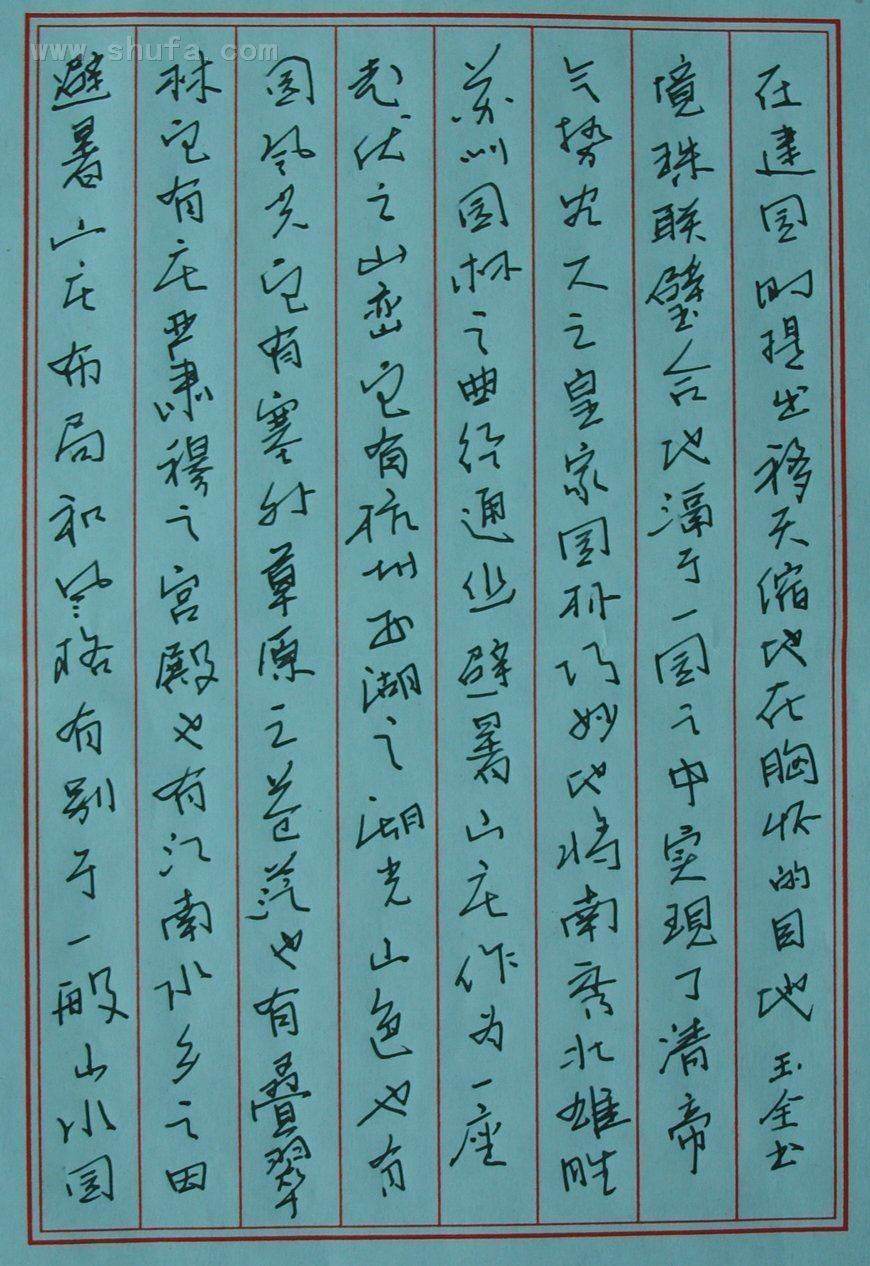 www.shufa.com
避暑山庄布局和风格有别于一般山水园
林它有庄严肃穆之宫殿也有江南水乡之田
园风光它有塞外草原之苍茫也有叠翠
起伏之山峦它有杭州西湖之湖光山色也有
苏州园林之曲径通幽避暑山庄作为一座
气势宏大之皇家园林巧妙地将南秀北雄胜
境珠联璧合地于一园之中实现了清帝
在建园时提出移天缩地在胸怀的目地 玉全书